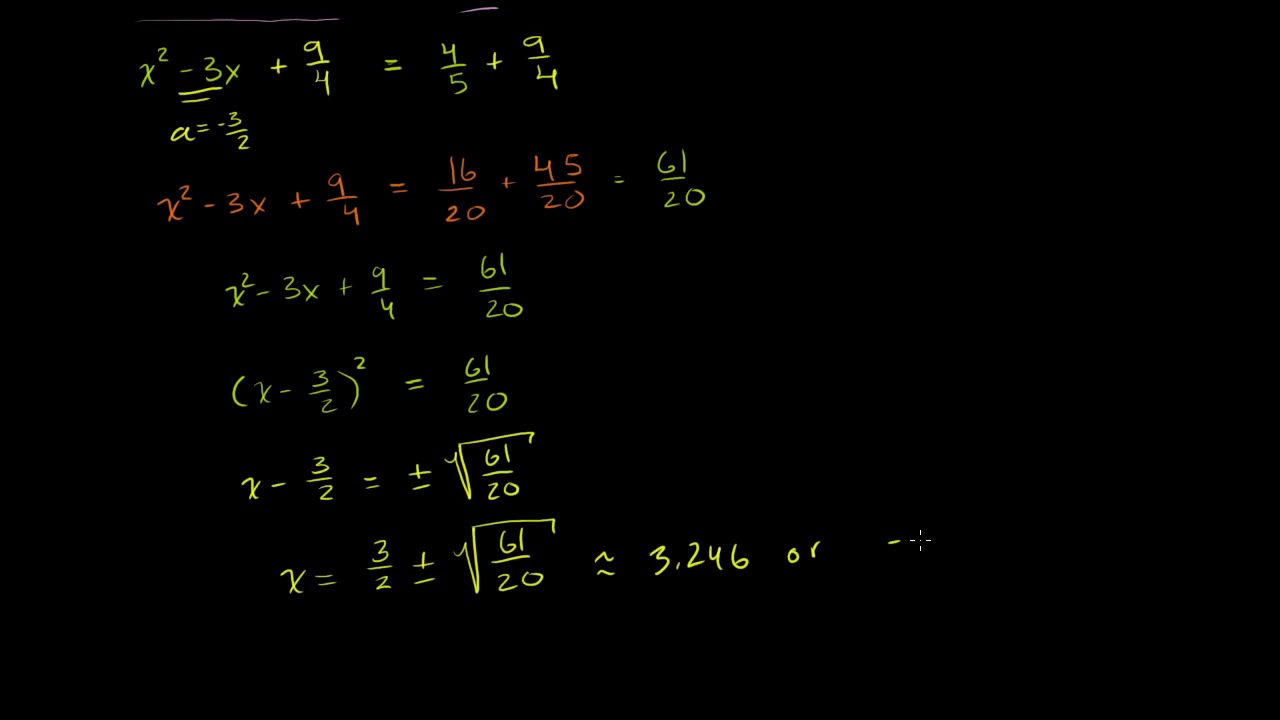 x² - 3x + 9/4 = 4/5 + 9/4
a = -3/2
x² - 3x + 9/4 = 16/20 + 45/20 = 61/20
x² - 3x + 9/4 = 61/20
(x - 3/2)² = 61/20
x - 3/2 = ± √(61/20)
x = 3/2 ± √(61/20) ≈ 3.246 or -